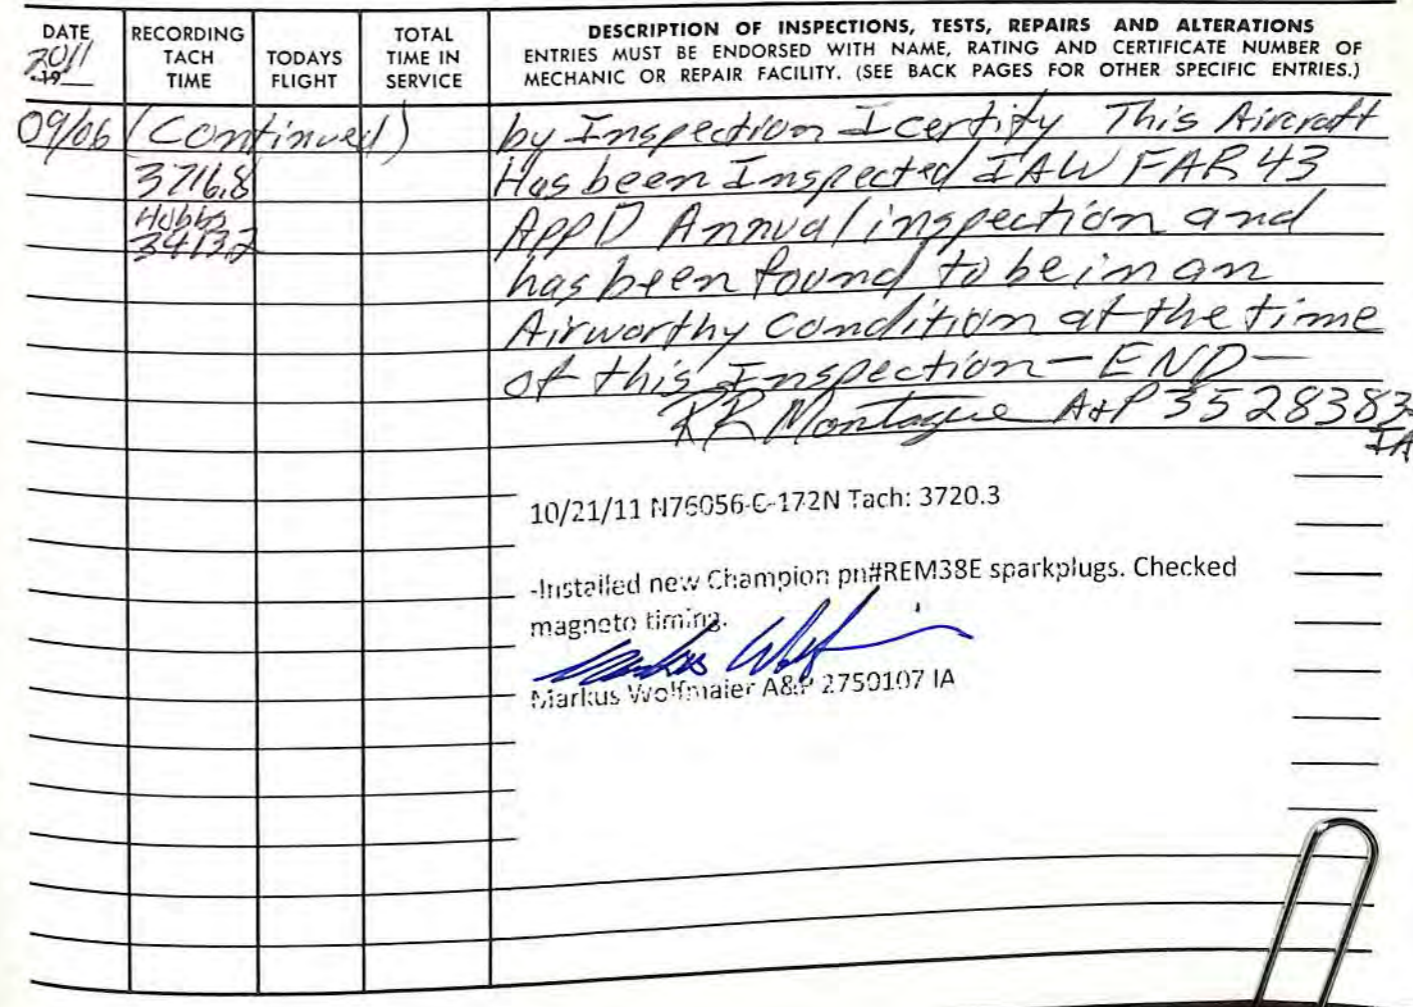 DATE RECORDING TODAYS TOTAL DESCRIPTION OF INSPECTIONS, TESTS, REPAIRS AND ALTERATIONS
2011 TACH FLIGHT TIME IN ENTRIES MUST BE ENDORSED WITH NAME, RATING AND CERTIFICATE NUMBER OF
19 TIME SERVICE MECHANIC OR REPAIR FACILITY. (SEE BACK PAGES FOR OTHER SPECIFIC ENTRIES.)
09/06 (Continued) by Inspection I certify This Aircraft
3716.8 Has been Inspected IAW FAR 43
Hobbs App D Annual inspection and
3413.2
has been found to be in an
Airworthy Condition at the time
of this Inspection — END —
RR Montague A&P 3528383
IA
10/21/11 N76056-C-172N Tach: 3720.3
-Installed new Champion pn#REM38E sparkplugs. Checked
magneto timing.
Markus Wolfmaier A&P 2750107 IA